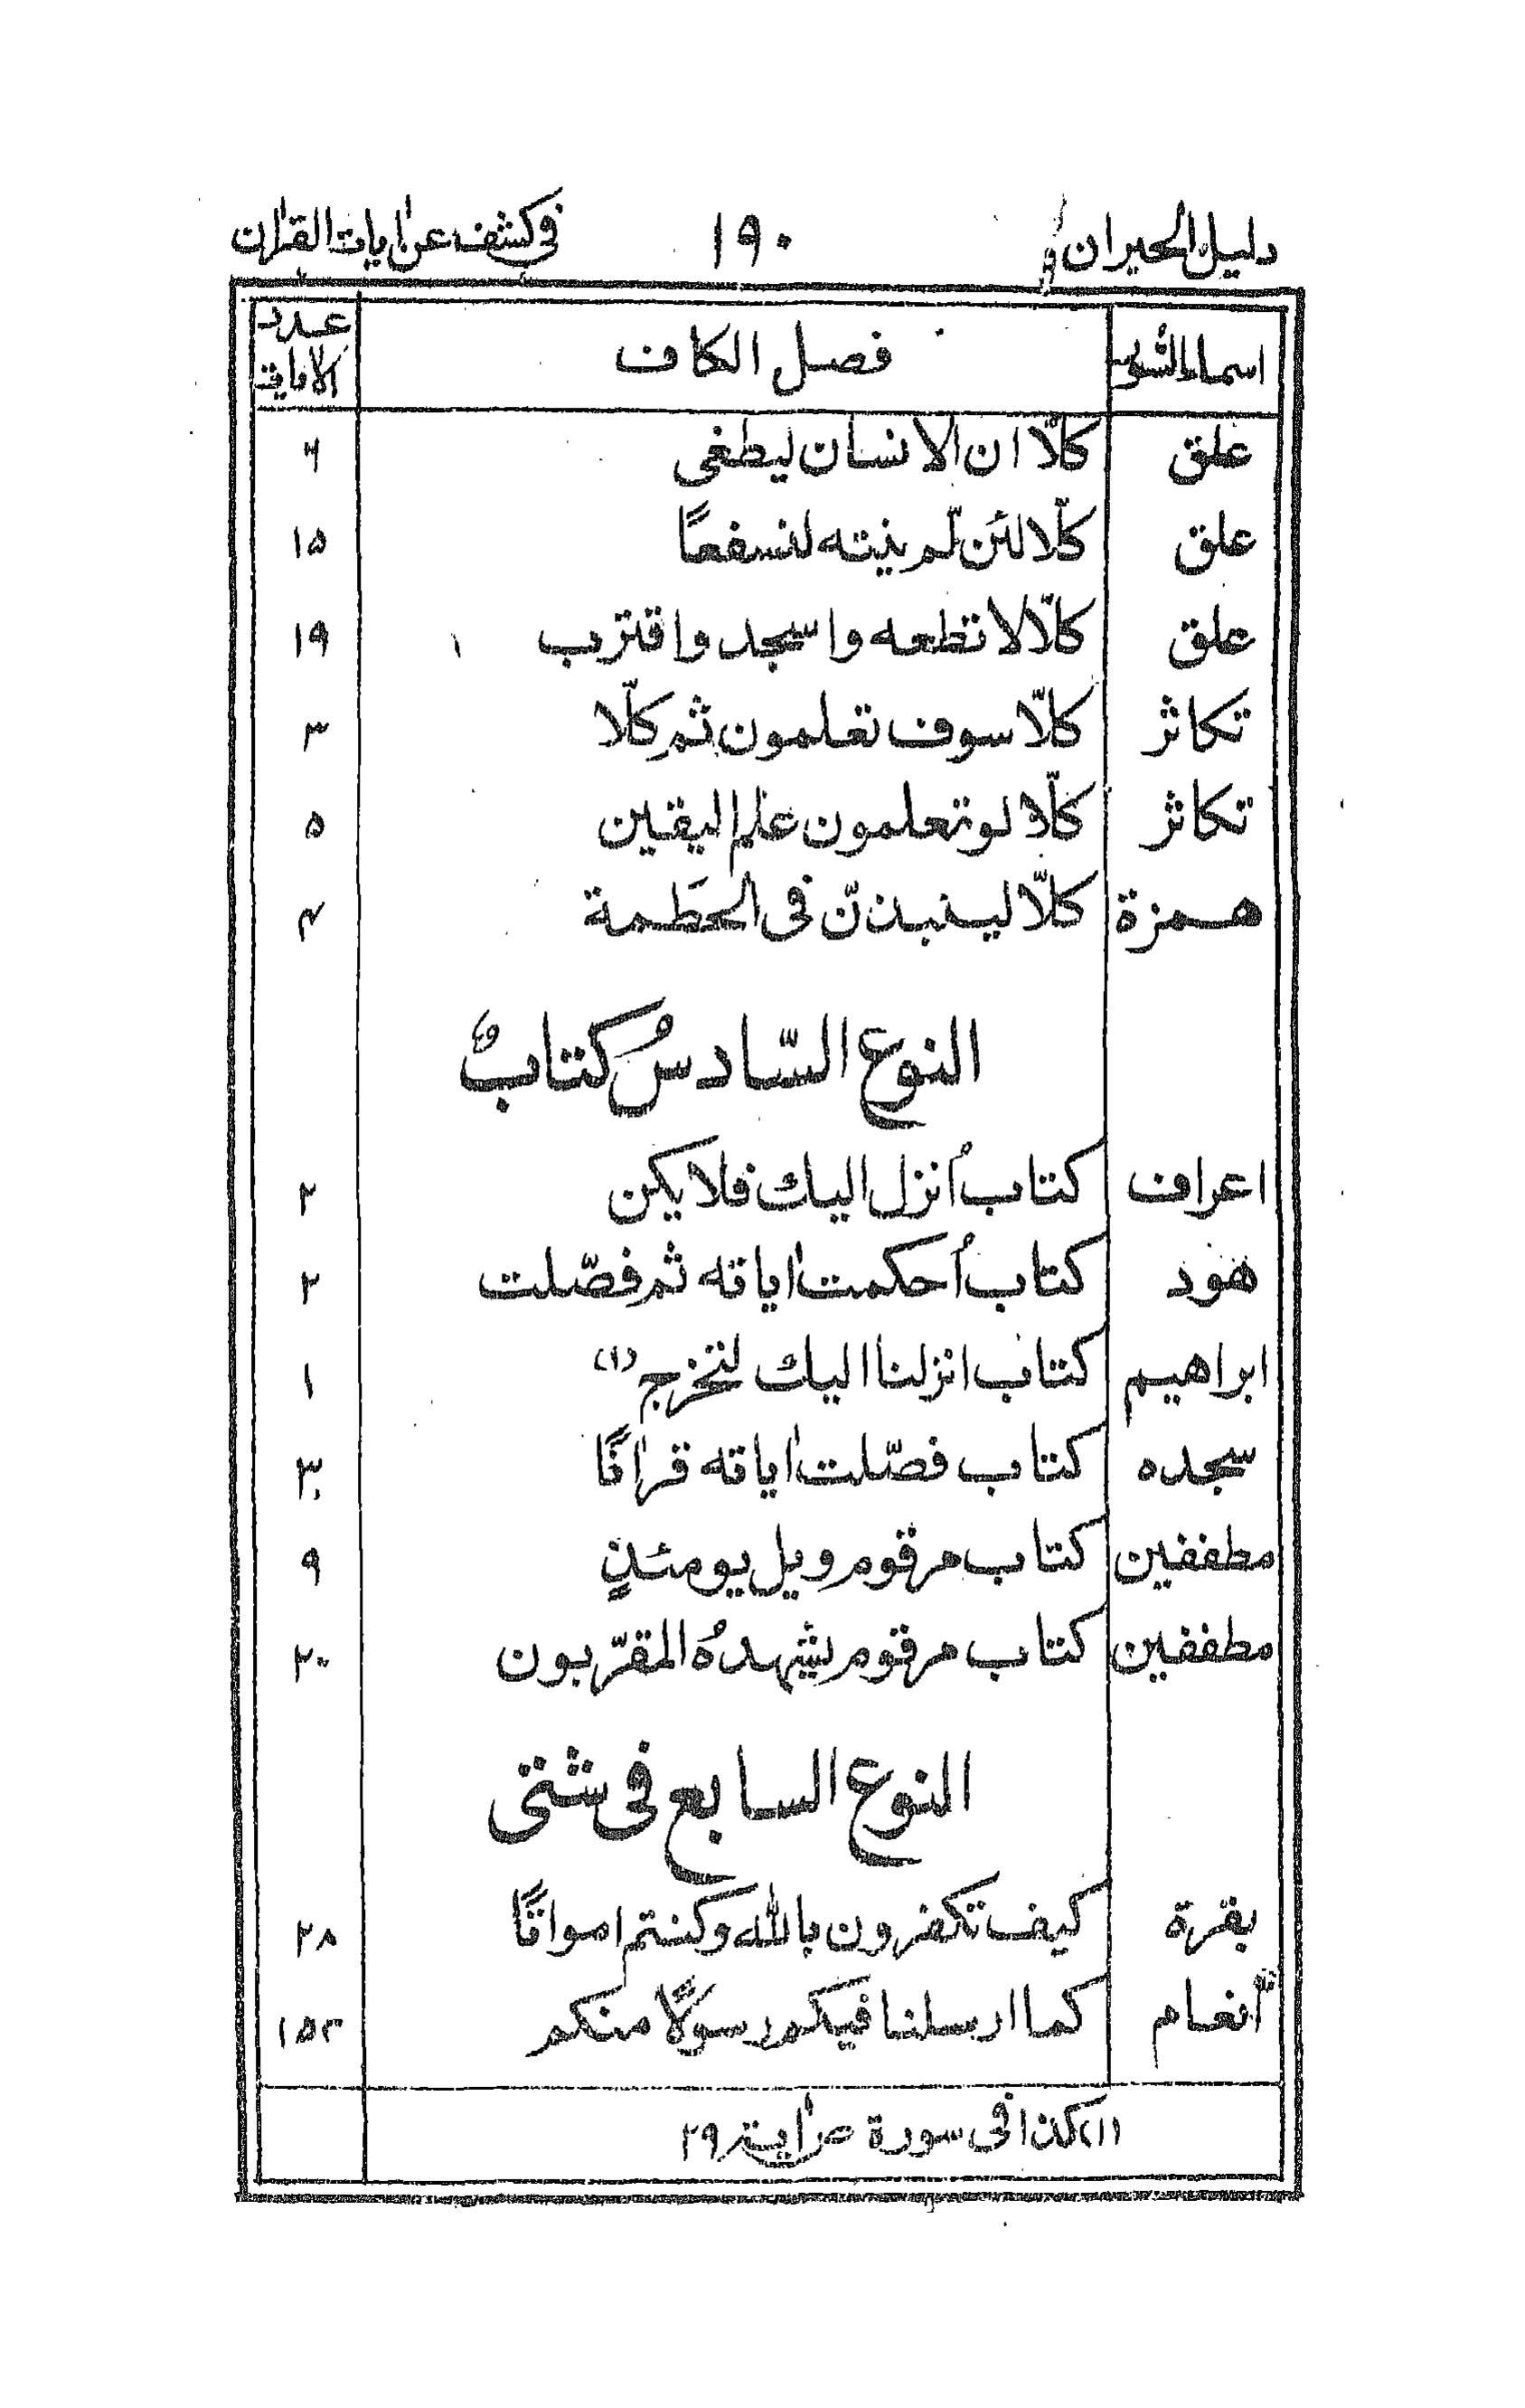 دليل الحيران ١٩٠ في كشف عن اٰيات القراٰن
اسماء السُّور فصل الكاف عدد الآيات
علق كلّا ان الانسان ليطغى ٦
علق كلّا لئن لّم ينته لنسفعًا ١٥
علق كلّا لا تطعه واسجد واقترب ١٩
تكاثر كلّا سوف تعلمون ثم كلّا ٣
تكاثر كلّا لو تعلمون علم اليقين ٥
همزة كلّا لينبذنّ في الحطَمة ٤
النوع السّادسُ كتابٌ
اعراف كتاب اُنزل اليك فلا يكن ٢
هود كتاب اُحكمت اٰياته ثم فصّلت ٢
ابراهيم كتاب انزلنا اليك لتخرج (١) ١
سجده كتاب فصّلت اٰياته قراٰنًا ٣
مطففين كتاب مرقوم ويل يومئذٍ ٩
مطففين كتاب مرقوم يشهدهُ المقرّبون ٢٠
النوع السابع في شتى
بقرة كيف تكفرون بالله وكنتم امواتًا ٢٨
أنعام كما ارسلنا فيكم رسولًا منكم ١٥٢
(١) كذا في سورة ص اٰية ٢٩